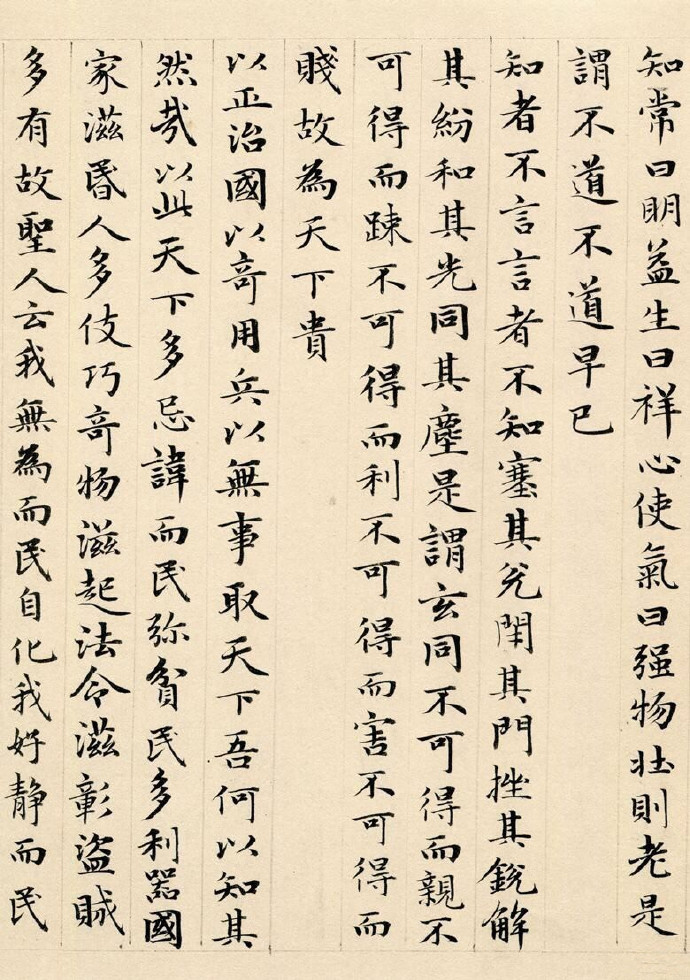 知常曰明益生曰祥心使氣曰强物壮則老是
謂不道不道早已
知者不言言者不知塞其兊閇其門挫其銳解
其紛和其光同其塵是謂玄同不可得而親不
可得而踈不可得而利不可得而害不可得而
賤故為天下貴
以正治國以竒用兵以無事取天下吾何以知其
然㢤以此天下多忌諱而民弥貧民多利器國
家滋昬人多伎巧竒物滋起法令滋彰盜賊
多有故聖人云我無為而民自化我好静而民